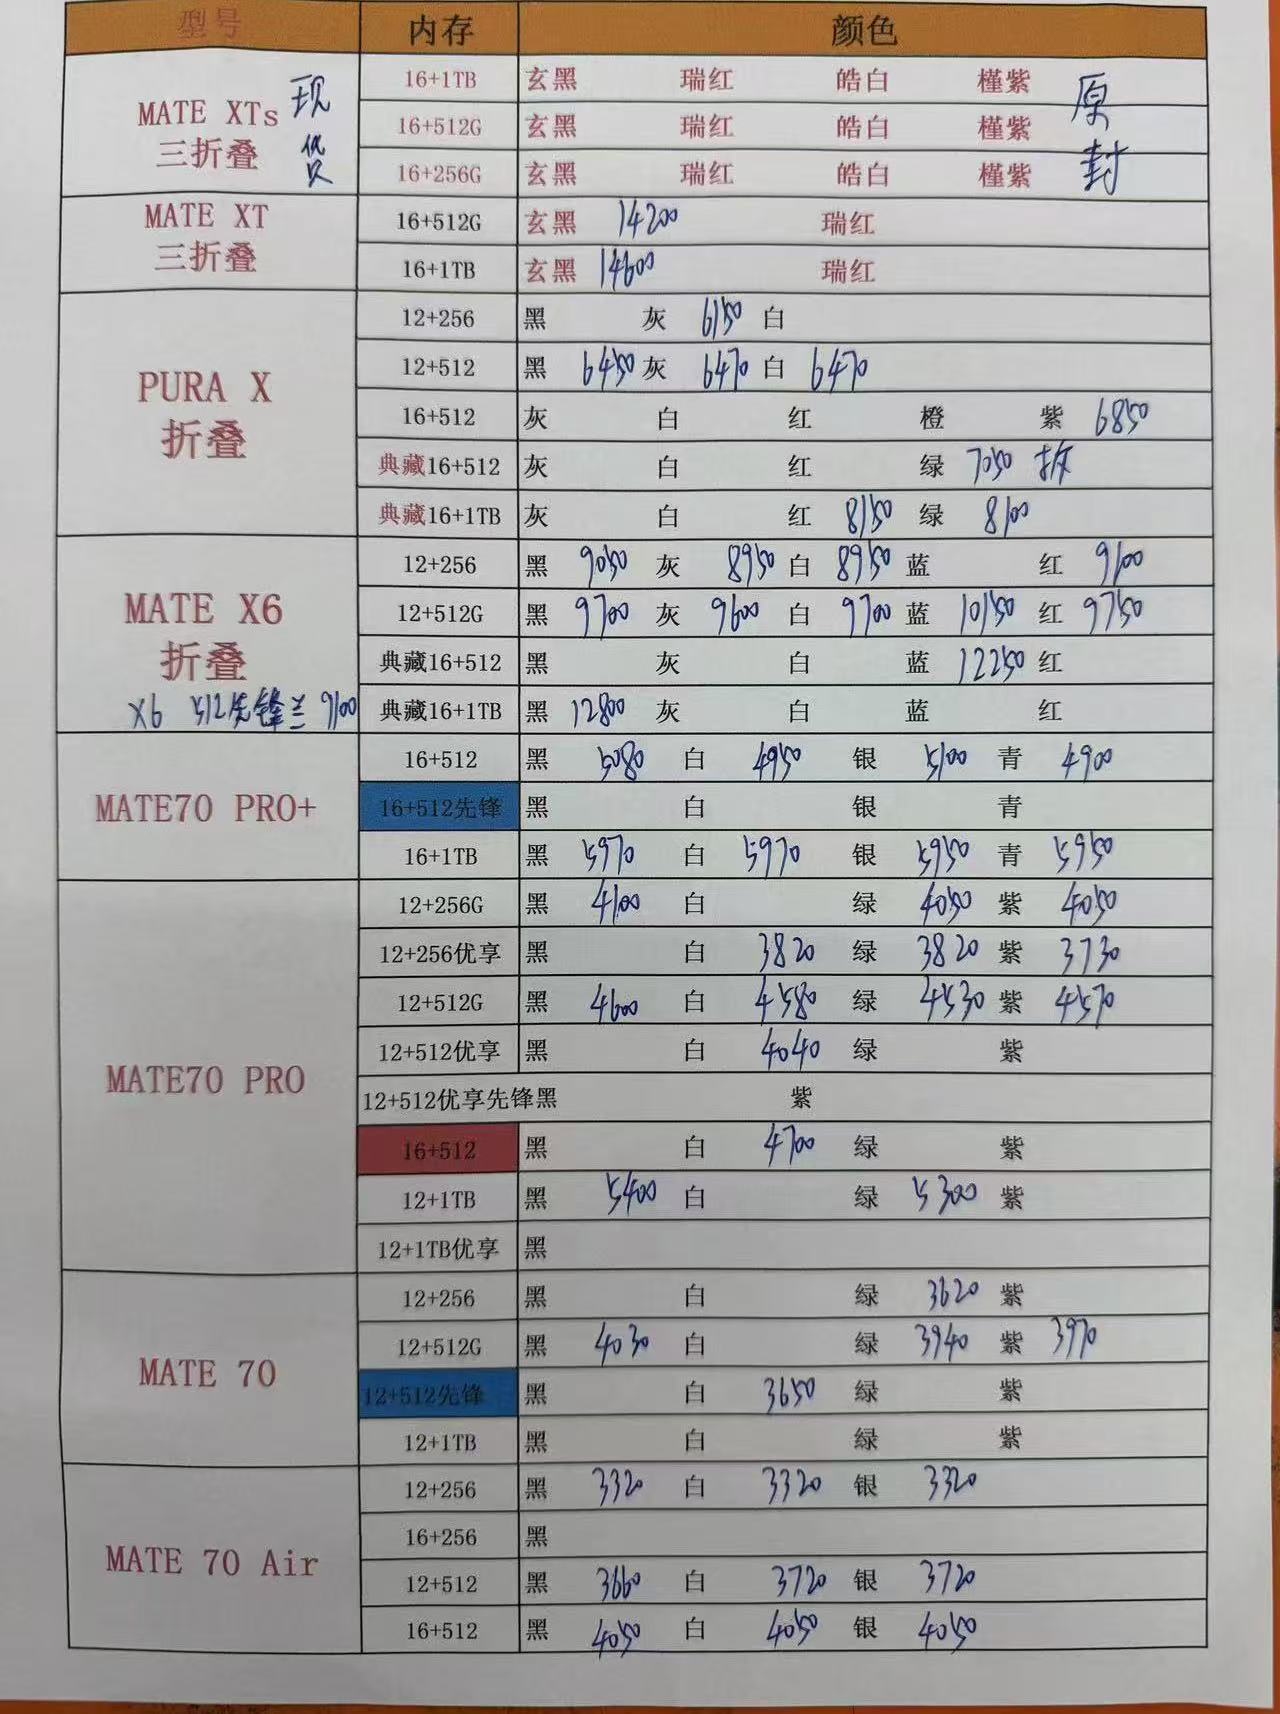 型号 内存 颜色
MATE XTs 三折叠 现货 原封
16+1TB 玄黑 瑞红 皓白 槿紫
16+512G 玄黑 瑞红 皓白 槿紫
16+256G 玄黑 瑞红 皓白 槿紫
MATE XT 三折叠
16+512G 玄黑 14200 瑞红
16+1TB 玄黑 14600 瑞红
PURA X 折叠
12+256 黑 灰 6150 白
12+512 黑 6450 灰 6470 白 6470
16+512 灰 白 红 橙 紫 6850
典藏16+512 灰 白 红 绿 7050 拆
典藏16+1TB 灰 白 红 8150 绿 8100
MATE X6 折叠
X6 512先锋兰 9100
12+256 黑 9050 灰 8950 白 8950 蓝 红 9100
12+512G 黑 9700 灰 9600 白 9700 蓝 10150 红 9750
典藏16+512 黑 灰 白 蓝 12250 红
典藏16+1TB 黑 12800 灰 白 蓝 红
MATE70 PRO+
16+512 黑 5080 白 4950 银 5100 青 4900
16+512先锋 黑 白 银 青
16+1TB 黑 5970 白 5970 银 5950 青 5950
MATE70 PRO
12+256G 黑 4100 白 绿 4050 紫 4050
12+256优享 黑 白 3820 绿 3820 紫 3730
12+512G 黑 4600 白 4580 绿 4530 紫 4570
12+512优享 黑 白 4040 绿 紫
12+512优享先锋黑 紫
16+512 黑 白 4700 绿 紫
12+1TB 黑 5400 白 绿 5300 紫
12+1TB优享 黑
MATE 70
12+256 黑 白 绿 3620 紫
12+512G 黑 4030 白 绿 3940 紫 3970
12+512先锋 黑 白 3650 绿 紫
12+1TB 黑 白 绿 紫
MATE 70 Air
12+256 黑 3320 白 3320 银 3320
16+256 黑
12+512 黑 3660 白 3720 银 3720
16+512 黑 4050 白 4050 银 4050